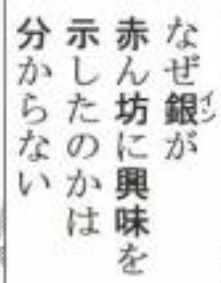 なぜ銀が
赤ん坊に興味を
示したのかは
分からない